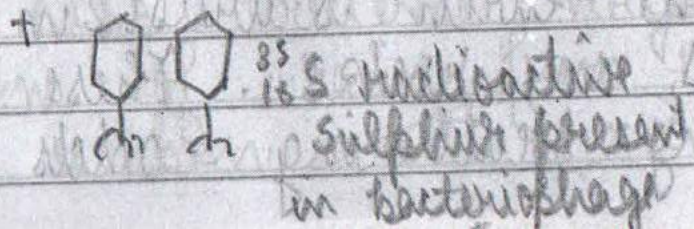 + 35
16 S radioactive
sulphur present
in bacteriophage